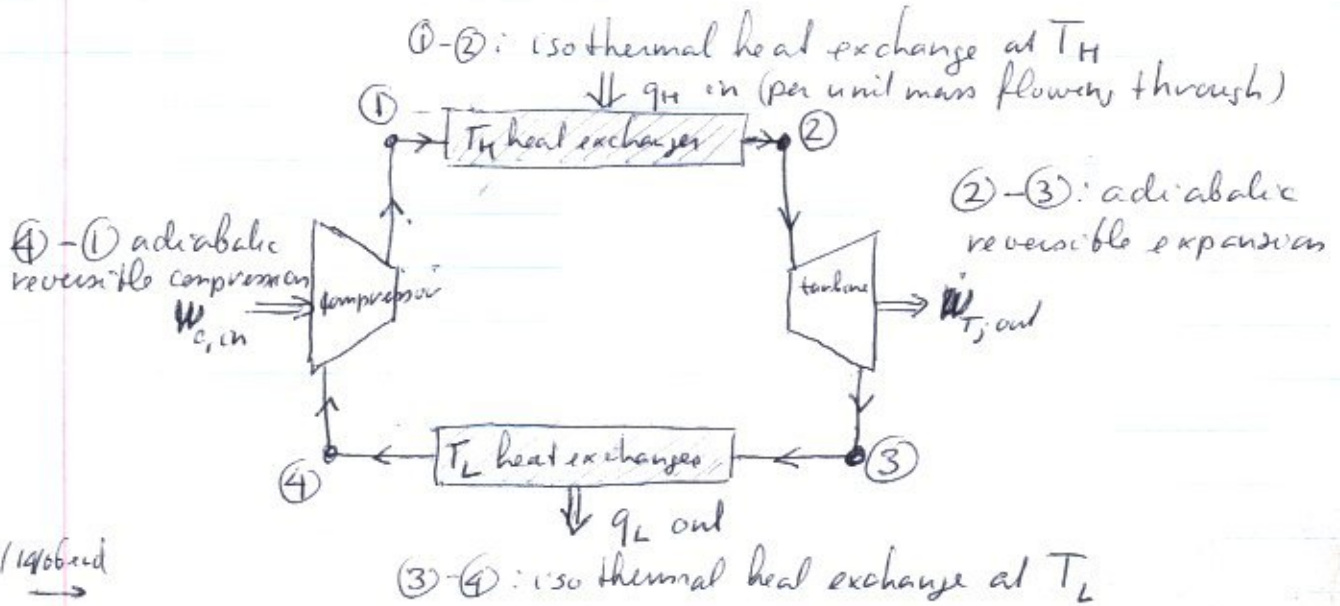 ①-②: isothermal heat exchange at T_H
⇓ q_H in (per unit mass flowing through)
①
T_H heat exchanger
②
②-③: adiabatic
reversible expansion
④-① adiabatic
reversible compression
W_c,in
compressor
turbine
W_T,out
④
T_L heat exchanger
③
q_L out
③-④: isothermal heat exchange at T_L